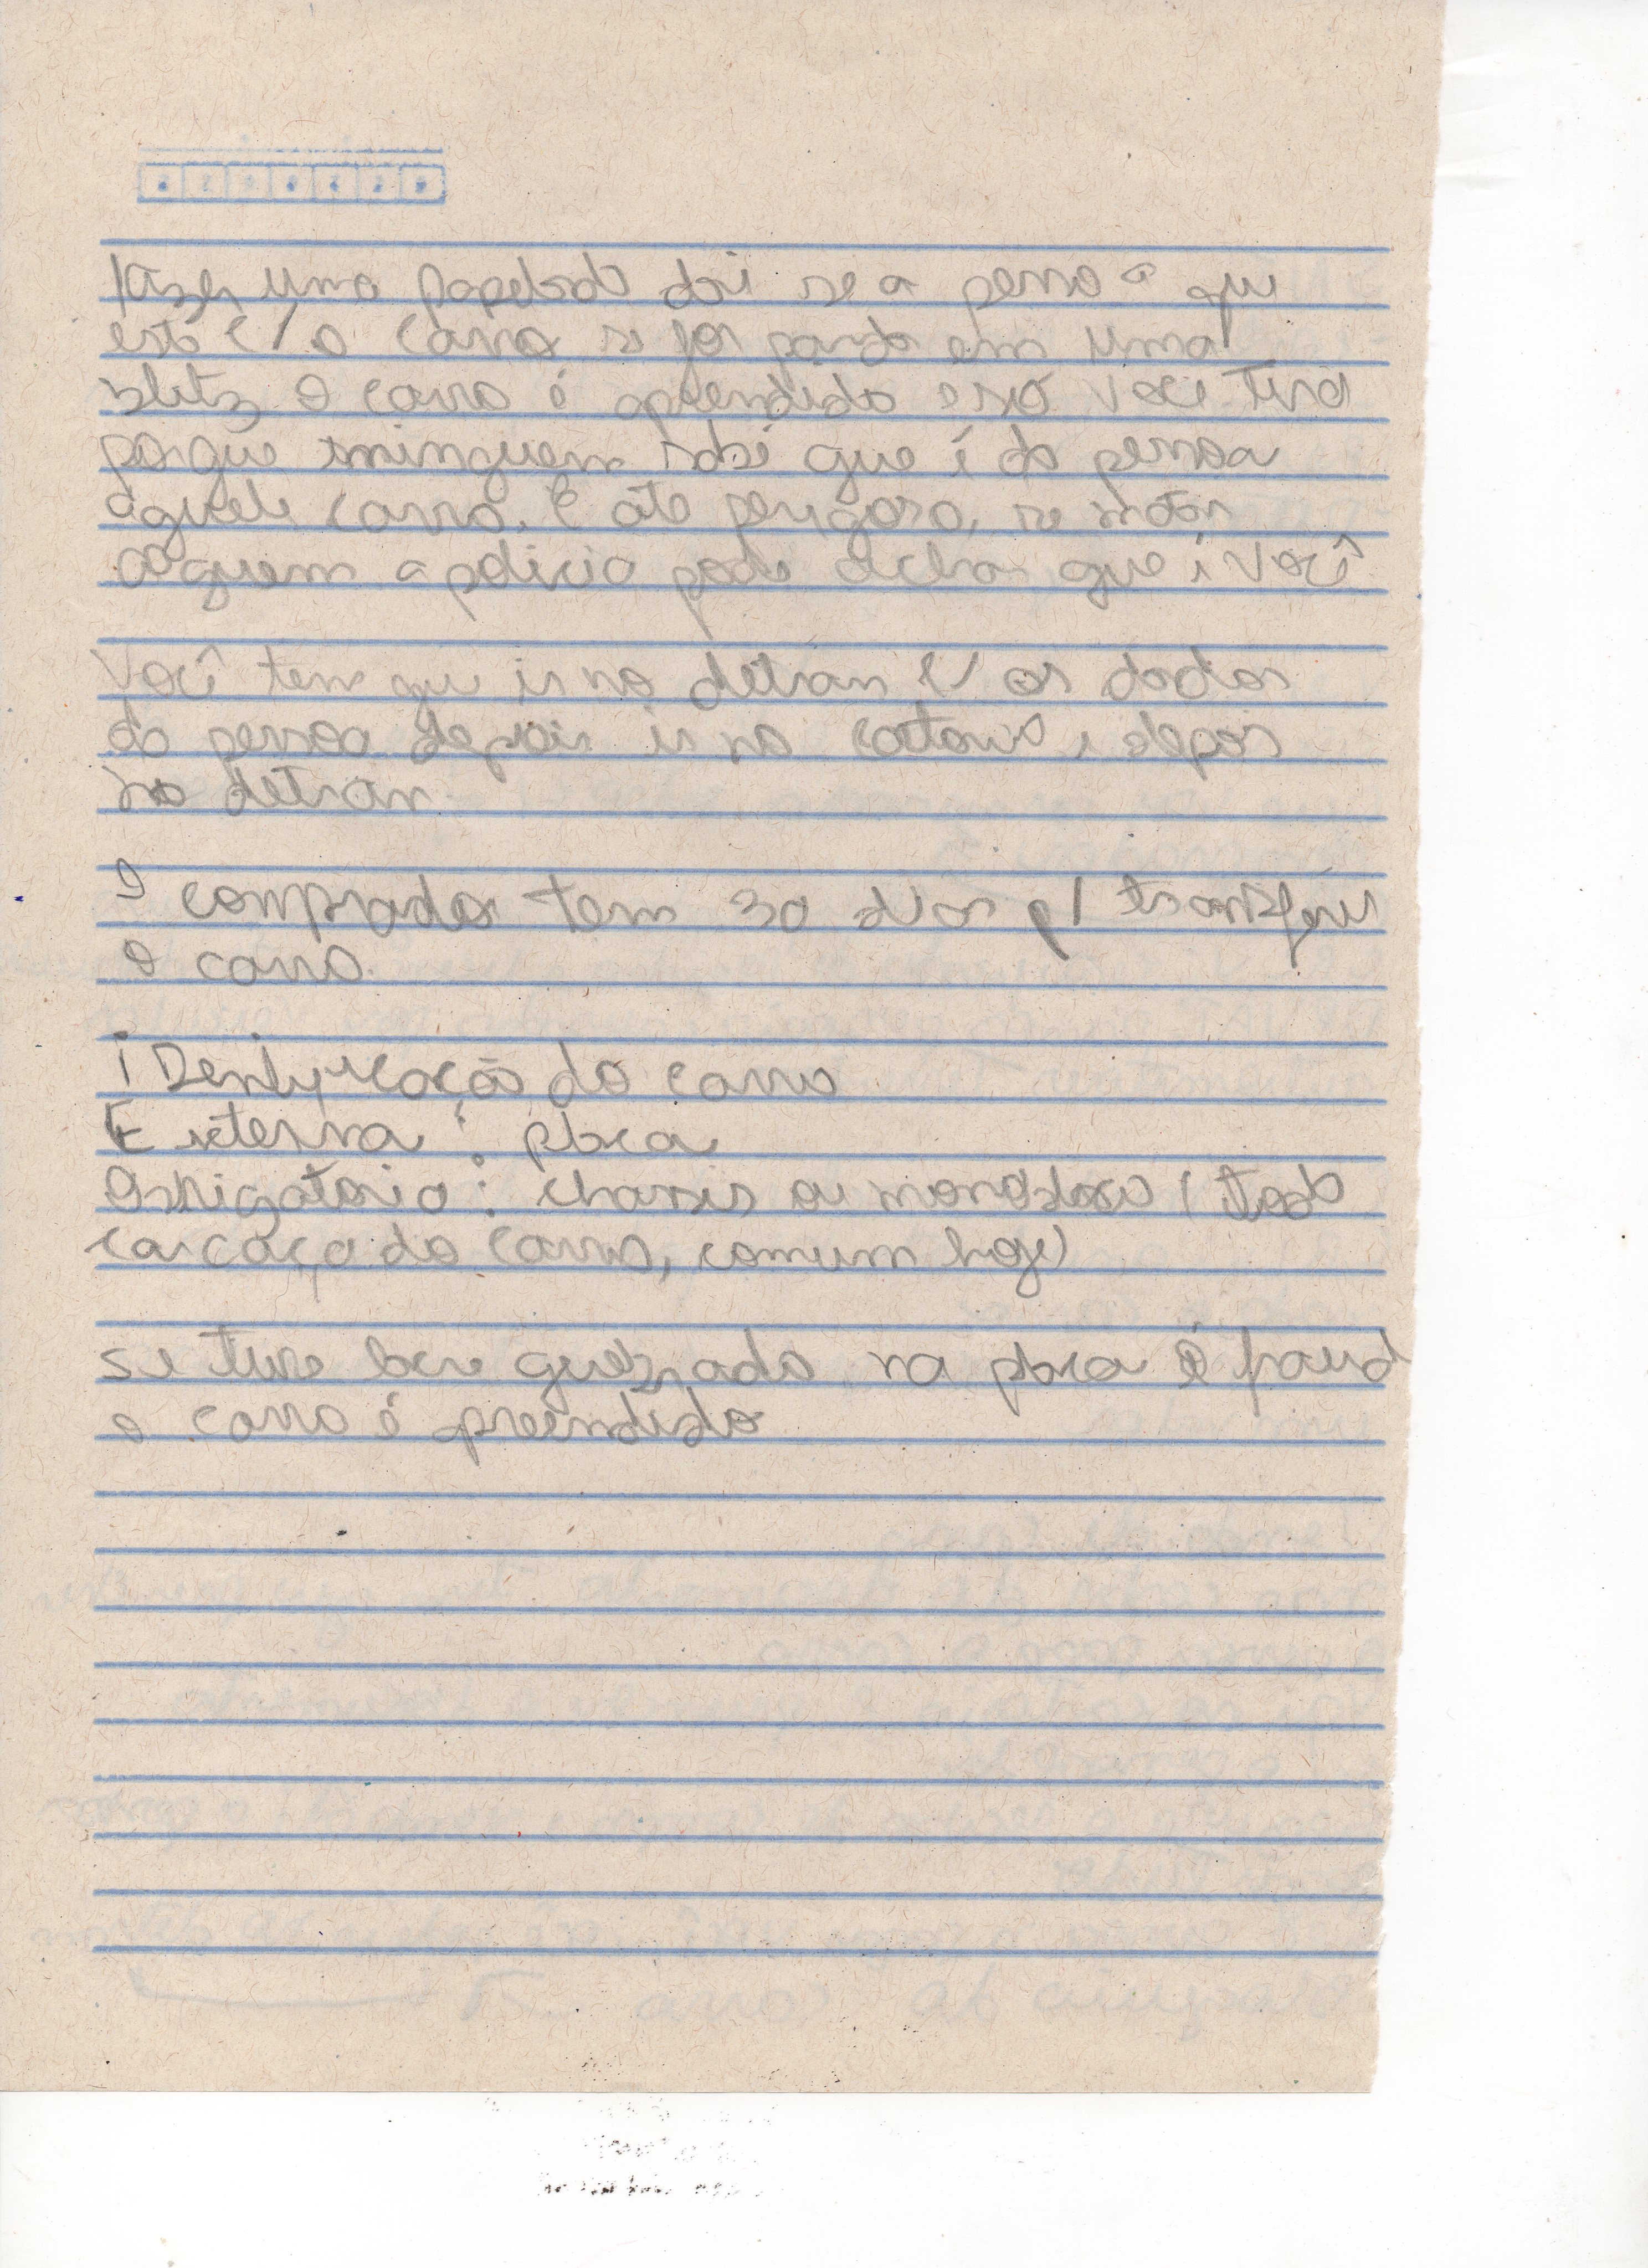 fazer uma papelada daí se a pessoa que
está c/ o carro se for parado em uma
blitz o carro é aprendido e só você tira
porque ninguem sabe que é da pessoa
aquele carro. É ate perigoso, se matar
alguem a policia pode achar que é você
Você tem que ir no detran c/ os dados
da pessoa depois ir no cartorio e depois
no detran
O comprador tem 30 dias p/ transferir
o carro.
iDentificação do carro
Externa: placa
Obrigatorio: chassis ou monobloco (toda
carcaça do carro, comum hoje)
se tive lacre quebrado na placa é fraud
o carro é preendido